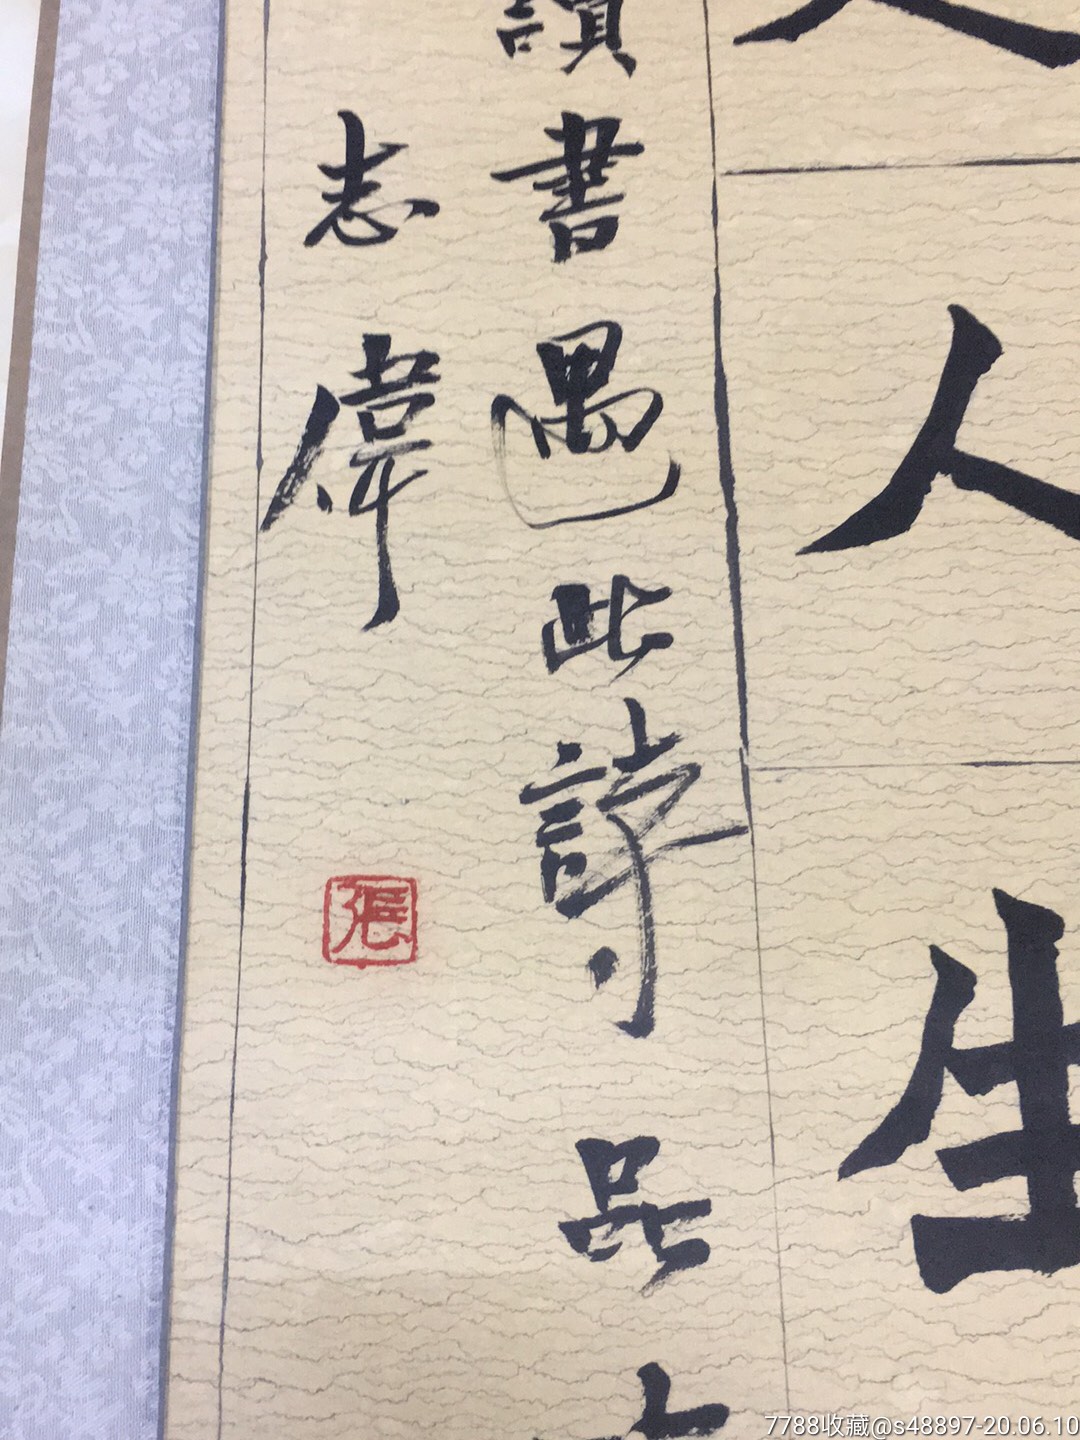 人生
讀書遇此詩品
志偉
張
7788收藏@s48897-20.06.10